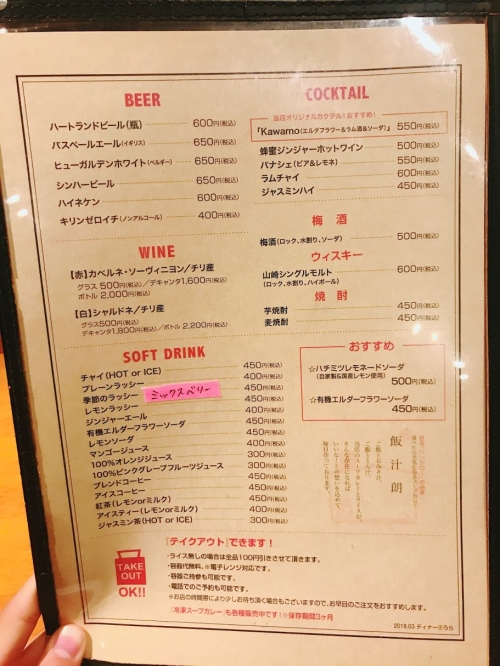 BEER
ハートランドビール(瓶) 600円(税込)
バスペールエール(イギリス) 650円(税込)
ヒューガルデンホワイト(ベルギー) 650円(税込)
シンハービール 650円(税込)
ハイネケン 600円(税込)
キリンゼロイチ(ノンアルコール) 400円(税込)
WINE
【赤】カベルネ・ソーヴィニヨン/チリ産
グラス 500円(税込)/デキャンタ1,600円(税込)
ボトル 2,000円(税込)
【白】シャルドネ/チリ産
グラス500円(税込)
デキャンタ1,800円(税込)/ボトル 2,200円(税込)
SOFT DRINK
チャイ(HOT or ICE) 450円(税込)
プレーンラッシー 400円(税込)
季節のラッシー ミックスベリー 450円(税込)
レモンラッシー 450円(税込)
ジンジャーエール 400円(税込)
有機エルダーフラワーソーダ 450円(税込)
レモンソーダ 450円(税込)
マンゴージュース 400円(税込)
100%オレンジジュース 300円(税込)
100%ピンクグレープフルーツジュース 300円(税込)
ブレンドコーヒー 450円(税込)
アイスコーヒー 450円(税込)
紅茶(レモンorミルク) 450円(税込)
アイスティー(レモンorミルク) 400円(税込)
ジャスミン茶(HOT or ICE) 300円(税込)
COCKTAIL
当店オリジナルカクテル!おすすめ!
「Kawamo(エルダフラワー&ラム酒&ソーダ)」 550円(税込)
蜂蜜ジンジャーホットワイン 500円(税込)
パナシェ(ビア&レモネ) 550円(税込)
ラムチャイ 600円(税込)
ジャスミンハイ 450円(税込)
梅酒
梅酒(ロック、水割り、ソーダ) 500円(税込)
ウィスキー
山崎シングルモルト 600円(税込)
(ロック、水割り、ハイボール)
焼酎
芋焼酎 450円(税込)
麦焼酎 450円(税込)
おすすめ
☆ハチミツレモネードソーダ
(自家製&国産レモン使用)
500円(税込)
☆有機エルダーフラワーソーダ
450円(税込)
飯汁朗
『テイクアウト』できます!
・ライス無しの場合は全品100円引きさせて頂きます。
・容器代無料。※電子レンジ対応です。
・容器ご持参も可能です。
・電話でのご予約も可能です。
※お店の時間帯により少しお待ち頂く場合もございますので、お早目のご注文をおすすめします。
『冷凍スープカレー』も各種販売中です!※保存期間3ヶ月
TAKE
OUT
OK!!
2018.03 ディナー①うら